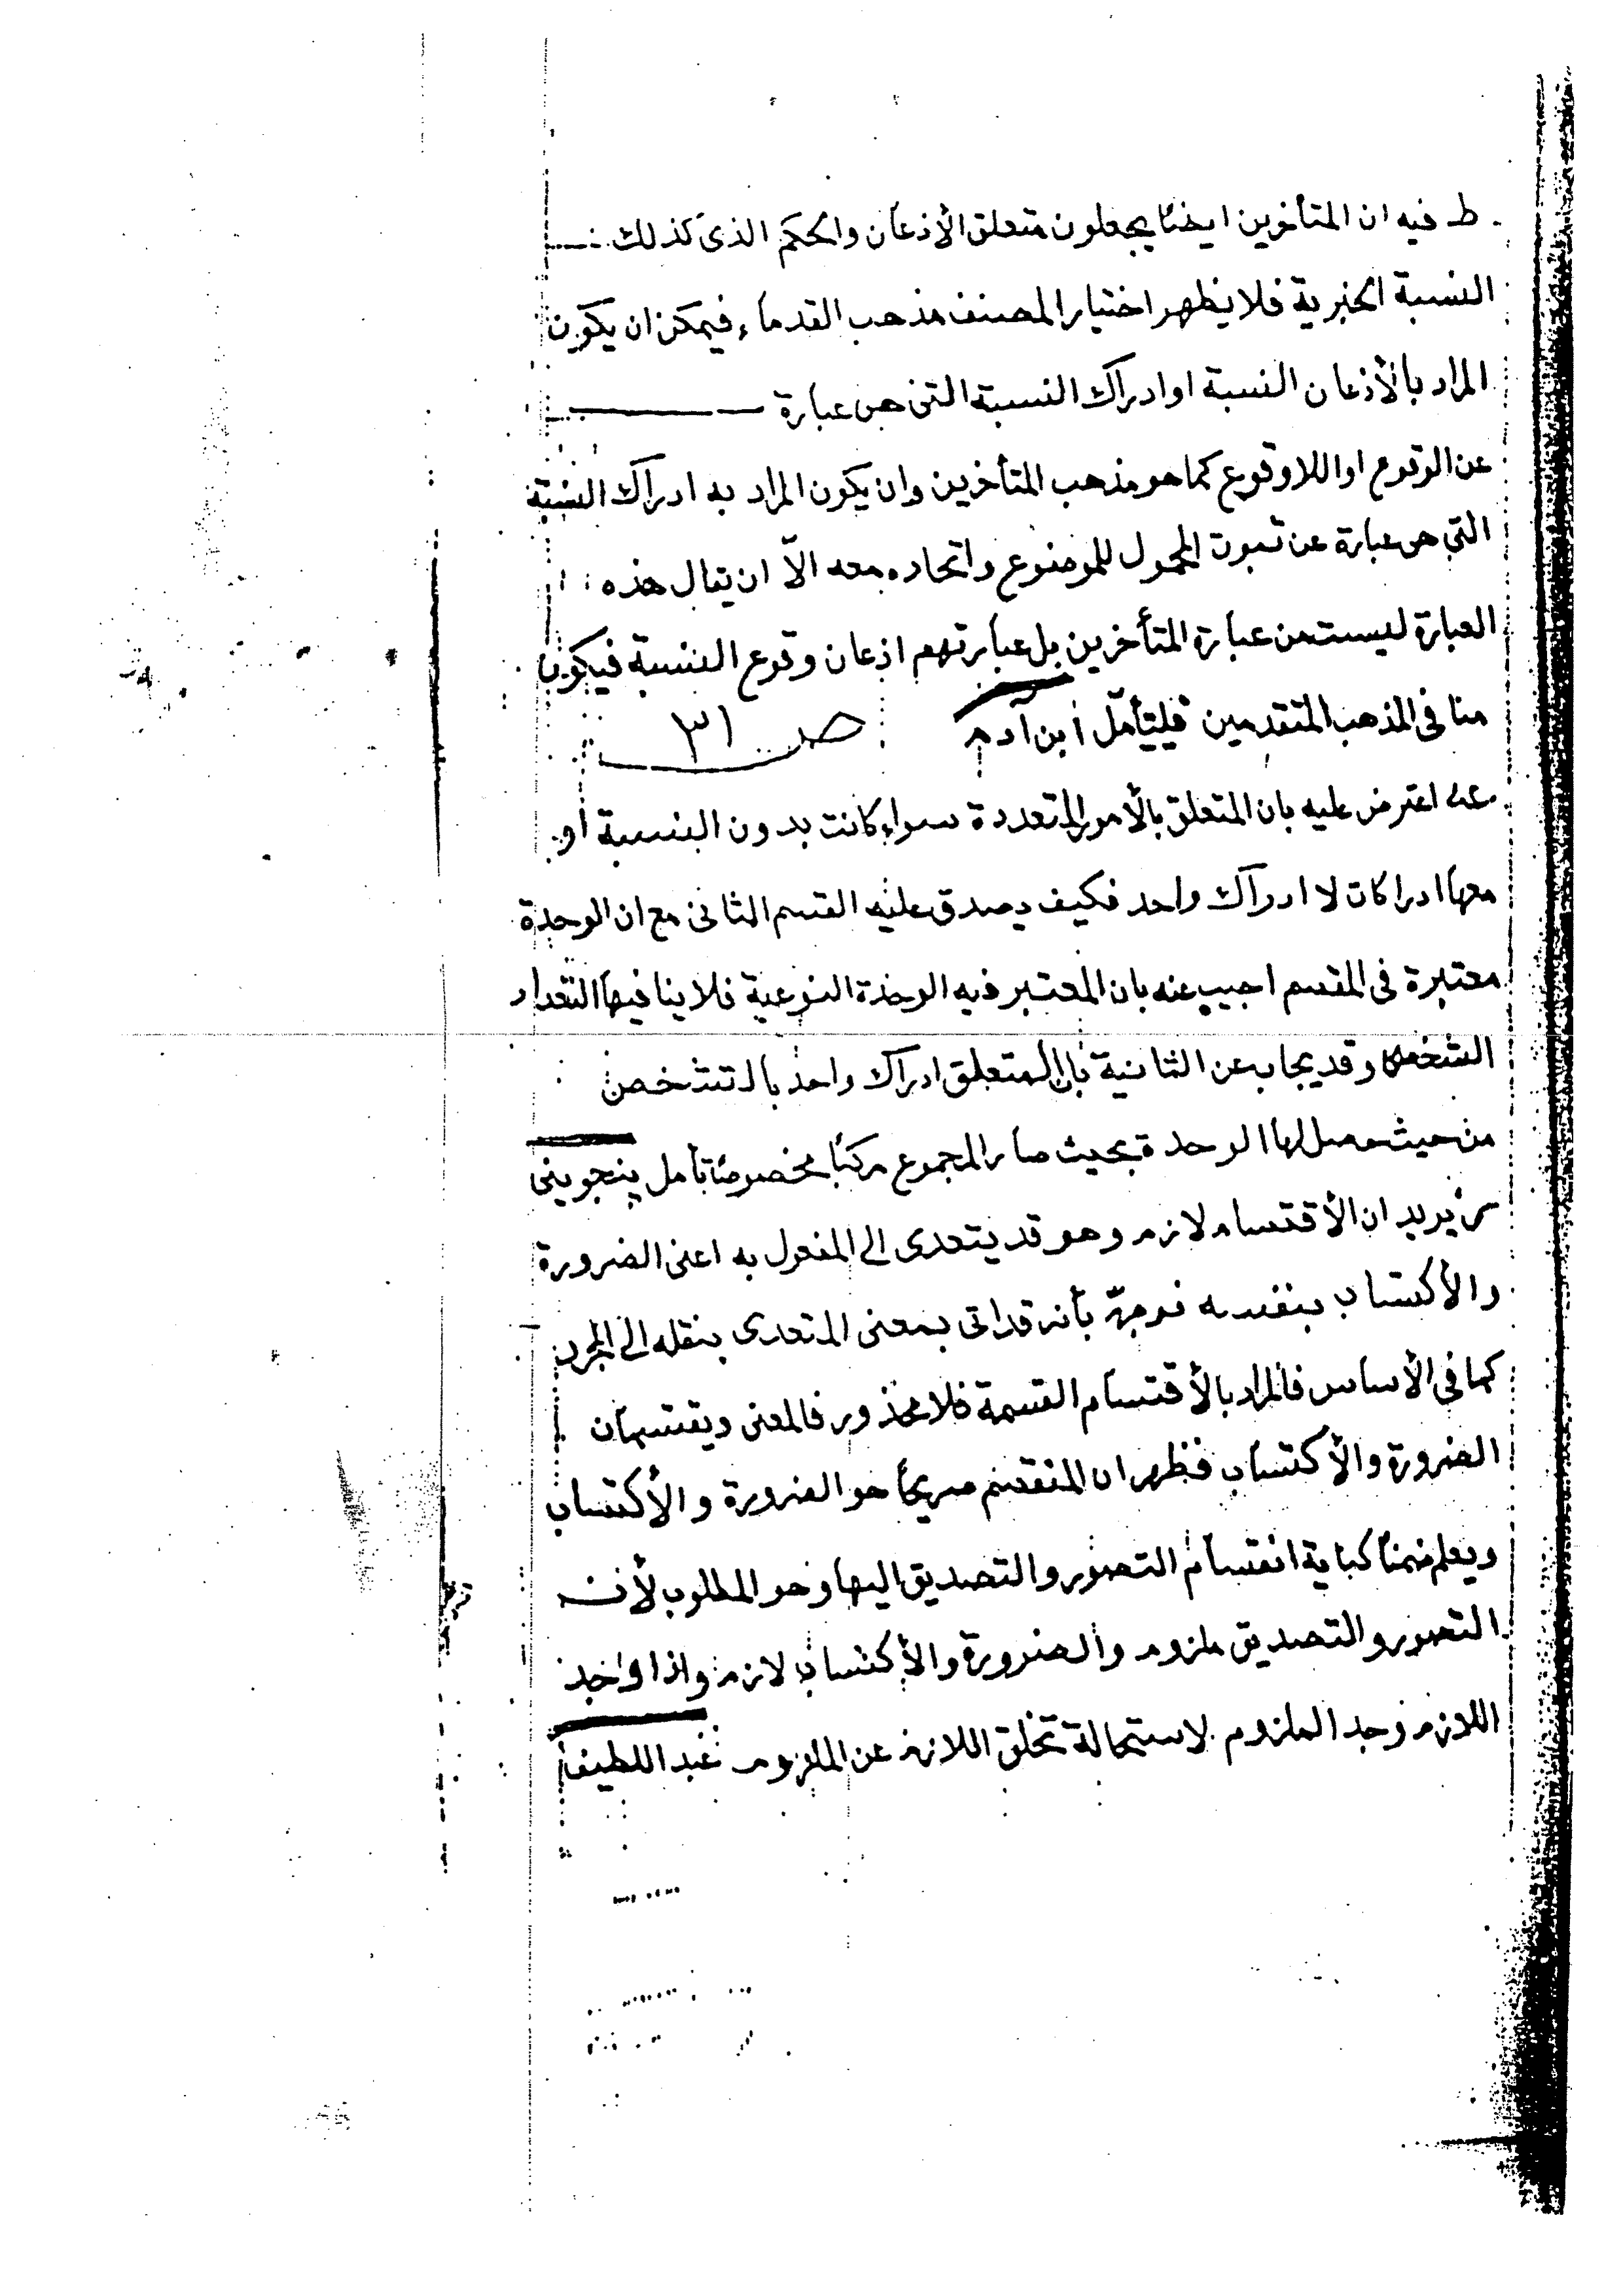 ط فيه ان المتأخرين ايضًا يجعلون متعلق الأذعان والحكم الذى كذلك
النسبة الخبرية فلا يظهر اختيار المصنف مذهب القدماء فيمكن ان يكون
المراد بالأذعان النسبة او ادراك النسبة التى هى عبارة
عن الوقوع او اللاوقوع كما هو مذهب المتأخرين وان يكون المراد به ادراك النسبة
التى هى عبارة عن ثبوت المحمول للموضوع واتحاده معه الاّ ان يقال هذه
العبارة ليست من عبارة المتأخرين بل عبارتهم اذعان وقوع النسبة فيكون
منا فى المذهب المتقدمين فليتأمّل ابن آدم صـ ٣١
اعترض عليه بان المتعلق بالأمور المتعددة سواء كانت بدون النسبة أو
معها ادراكات لا ادراك واحد فكيف يصدق عليه القسم الثانى مع ان الوحدة
معتبرة فى المقسم اجيب عنه بان المعتبر فيه الوحدة النوعية فلا ينافيها التعداد
الشخصى وقد يجاب عن الثانية بان المتعلق ادراك واحد بالتشخص
من حيث حصل لها الوحدة بحيث صار المجموع مركبًا مخصوصًا تأمل پنجوينى
يريد ان الأقتسام لازم وهو قد يتعدى الى المفعول به اعنى الضرورة
والأكتساب بنفسه فوجّه بأنه قد اتى بمعنى المتعدى بنقله الى المجرد
كما فى الأساس فالمراد بالأقتسام القسمة فلا محذور فالمعنى ويقتسمان
الضرورة والأكتساب فظهر ان المنقسم صريحًا هو الضرورة والأكتساب
ويعلم ضمنًا كناية انقسام التصور والتصديق اليها وهو المطلوب لأن
التصور والتصديق ملزوم والضرورة والأكتساب لازم واذا وجد
اللازم وجد الملزوم لاستحالة تخلق اللازم عن الملزوم عبد اللطيف